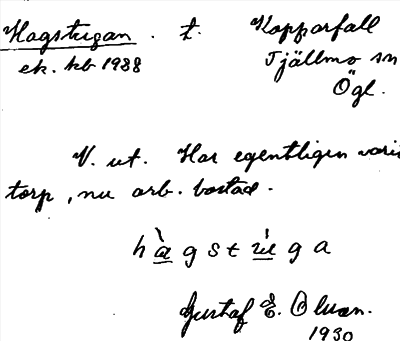 Hagstugan . t. Kopparfall
ek. kb 1938 Tjällmo sn
Ögl.
V. ut. Har egentligen varit
torp, nu arb. bostad.
hàgstúga
Gustaf E. Oluan.
1930